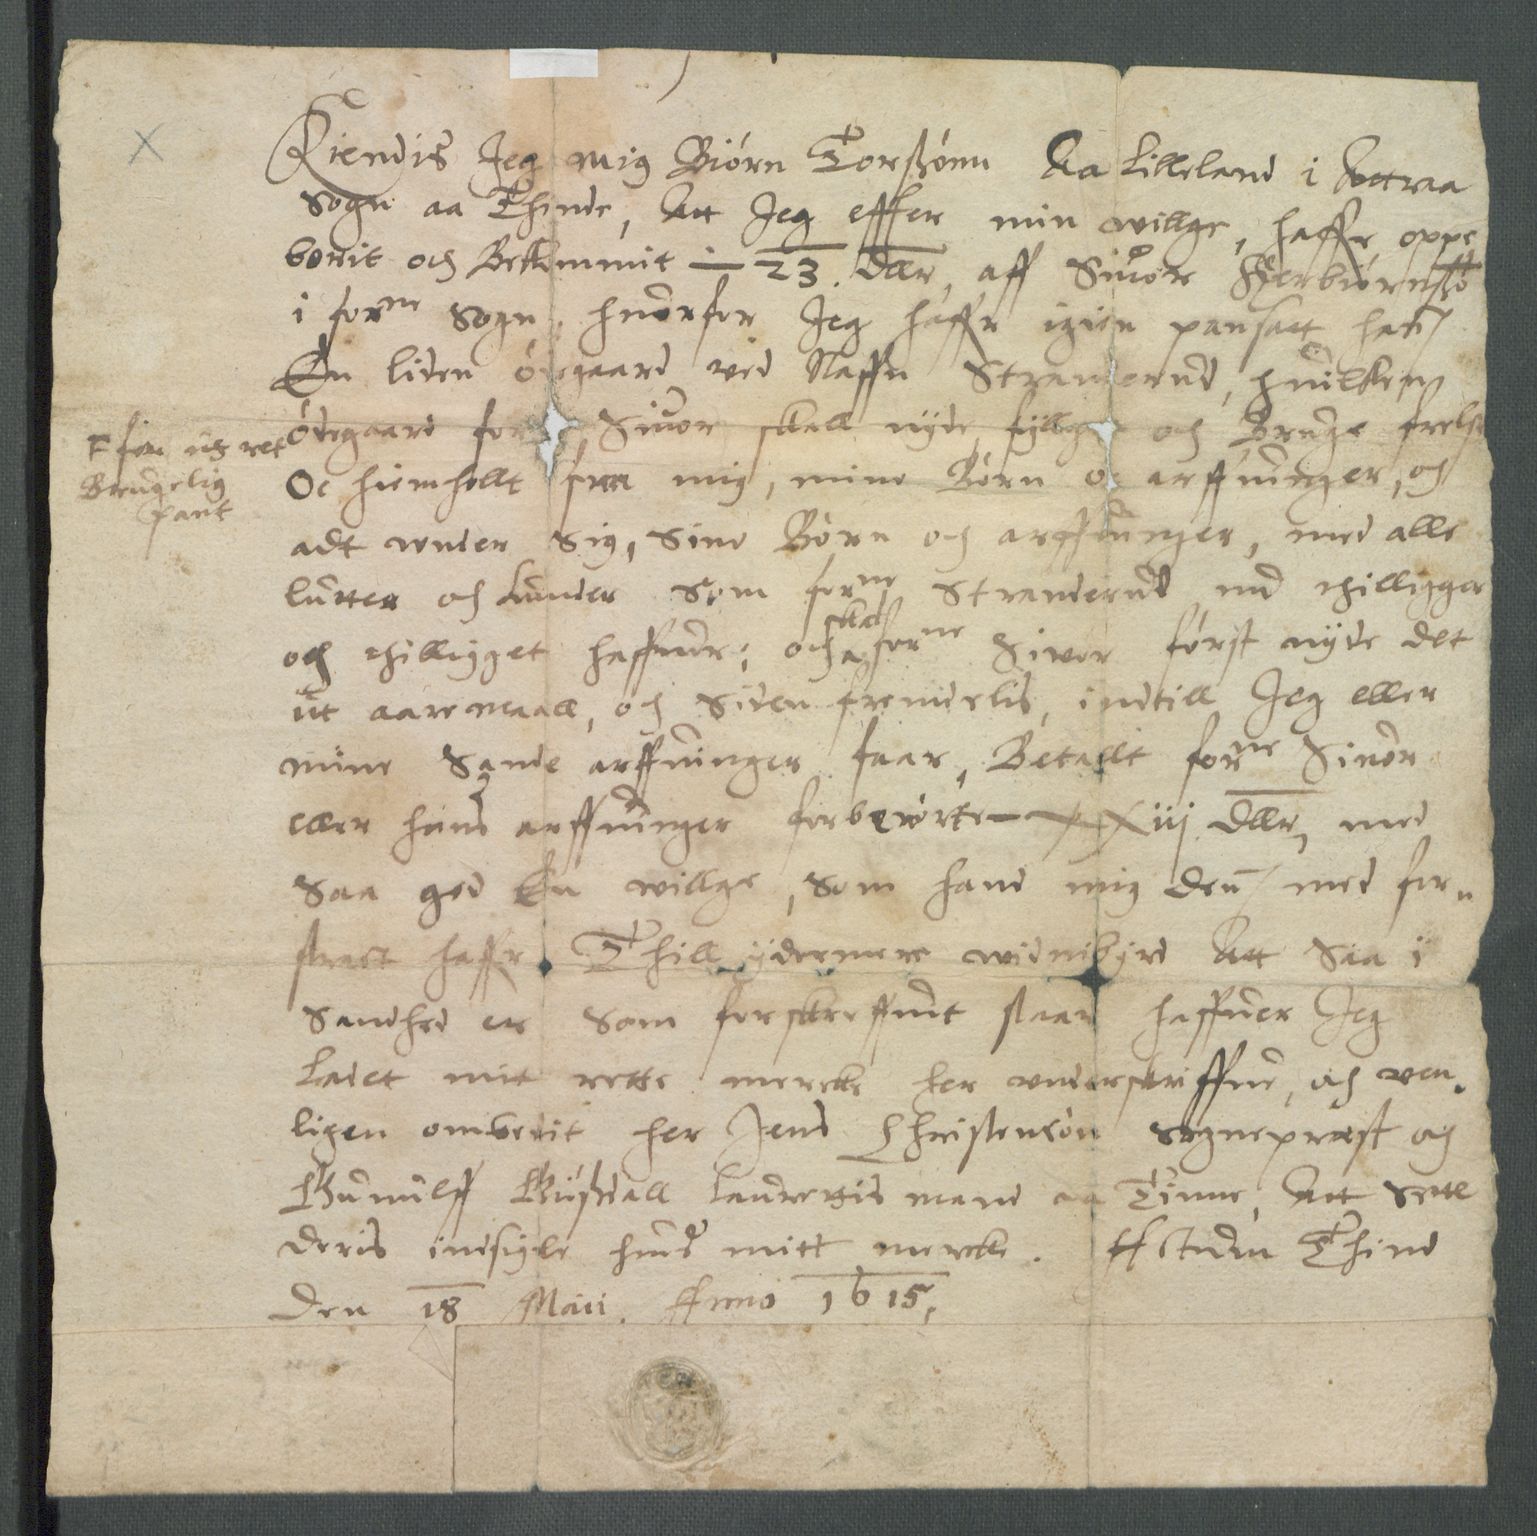 Kiendis Jeg mig Biörn Torßönn Aa Lilleland i Attraa
sogn aa Thinde, Att Jeg effter min willge, haffr oppe
borit och Bekommit — 23. dlr, aff Siuor Herbiörnßö
i forne Sogn, huorfor Jeg haffr igien pansatt han
En liden ödegaard ved Naffn Stranderud, huilken
ödegaard forne, Siuor skall nyde, fyllge och Bruge frelst
Oc hiemhollt fraa mig, mine Börn oc arffuinger, och
adt under Sig, Sine Börn och arffuinger, med alle
lutter och lunder som forne Stranderud nu thilligger
och thilligget haffuer; och skal forne Siuor först nyde det
ut aaremaall, och Siden fremdelis, indtill Jeg eller
mine Sande arffuinger faar, Betallt forne Siuor
eller hans arffuinger forberörte — XXiij dlr, med
Saa god En willge, som hand mig den med for-
stract haffr Thill ydermere widnisbyrd Att Saa i
Sandhed er som forskreffuit staar haffuer Jeg
Ladet mit rette mercke her underskriffue, och ven-
ligen ombedit her Jens Christensön sogneprest och
Gunulff Bußdall Laurettis mand aa Tinne, Att sette
deris indsigle hues mitt mercke. Actum Thind
Den 18 Maii. Anno 1615,
F for it ret
Brugelig
pant